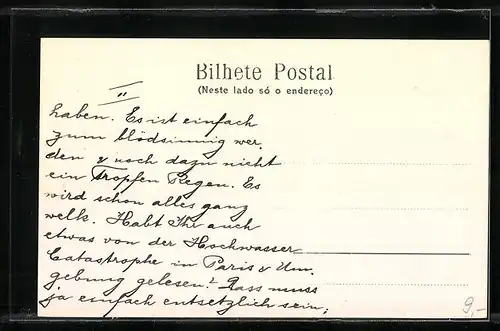 Bilhete Postal
(Neste lado só o endereço)
II
haben. Es ist einfach
zum blödsinnig wer.
den & noch dazu nicht
ein Tropfen Regen. Es
wird schon alles ganz
welk. Habt Ihr auch
etwas von der Hochwasser
Catastrophe in Paris & Um.
gebung gelesen? Dass muss
ja einfach entsetzlich sein;
9,-